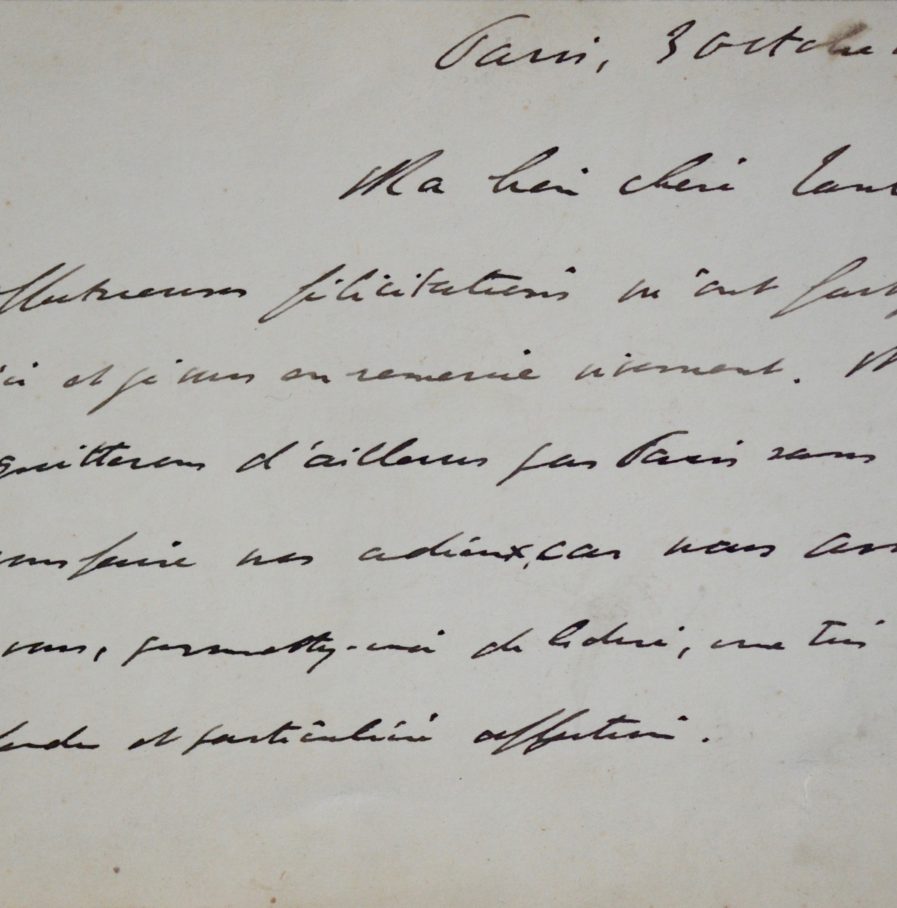 Paris, 3 octobre
Ma bien chère Tant
affectueuses félicitations m'ont fort
et je vous en remercie vivement.
quitterons d'ailleurs pas Paris sans
vous faire nos adieux, car nous avo
vous, permettez-moi de le dire, une très
et particulière affection.